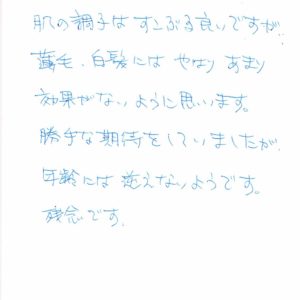 肌の調子は すこぶる良いですが、
薄毛、白髪には やはり あまり
効果がないように思います。
勝手な期待をしていましたが、
年齢には 逆えないようです。
残念です。